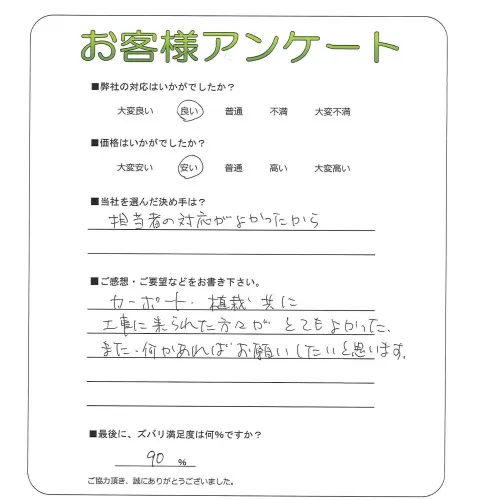 お客様アンケート
■弊社の対応はいかがでしたか？
大変良い 良い 普通 不満 大変不満
■価格はいかがでしたか？
大変安い 安い 普通 高い 大変高い
■当社を選んだ決め手は？
担当者の対応がよかったから
■ご感想・ご要望などをお書き下さい。
カーポート・植栽共に
工事に来られた方々がとてもよかった、
また、何かあればお願いしたいと思います。
■最後に、ズバリ満足度は何％ですか？
90 ％
ご協力頂き、誠にありがとうございました。